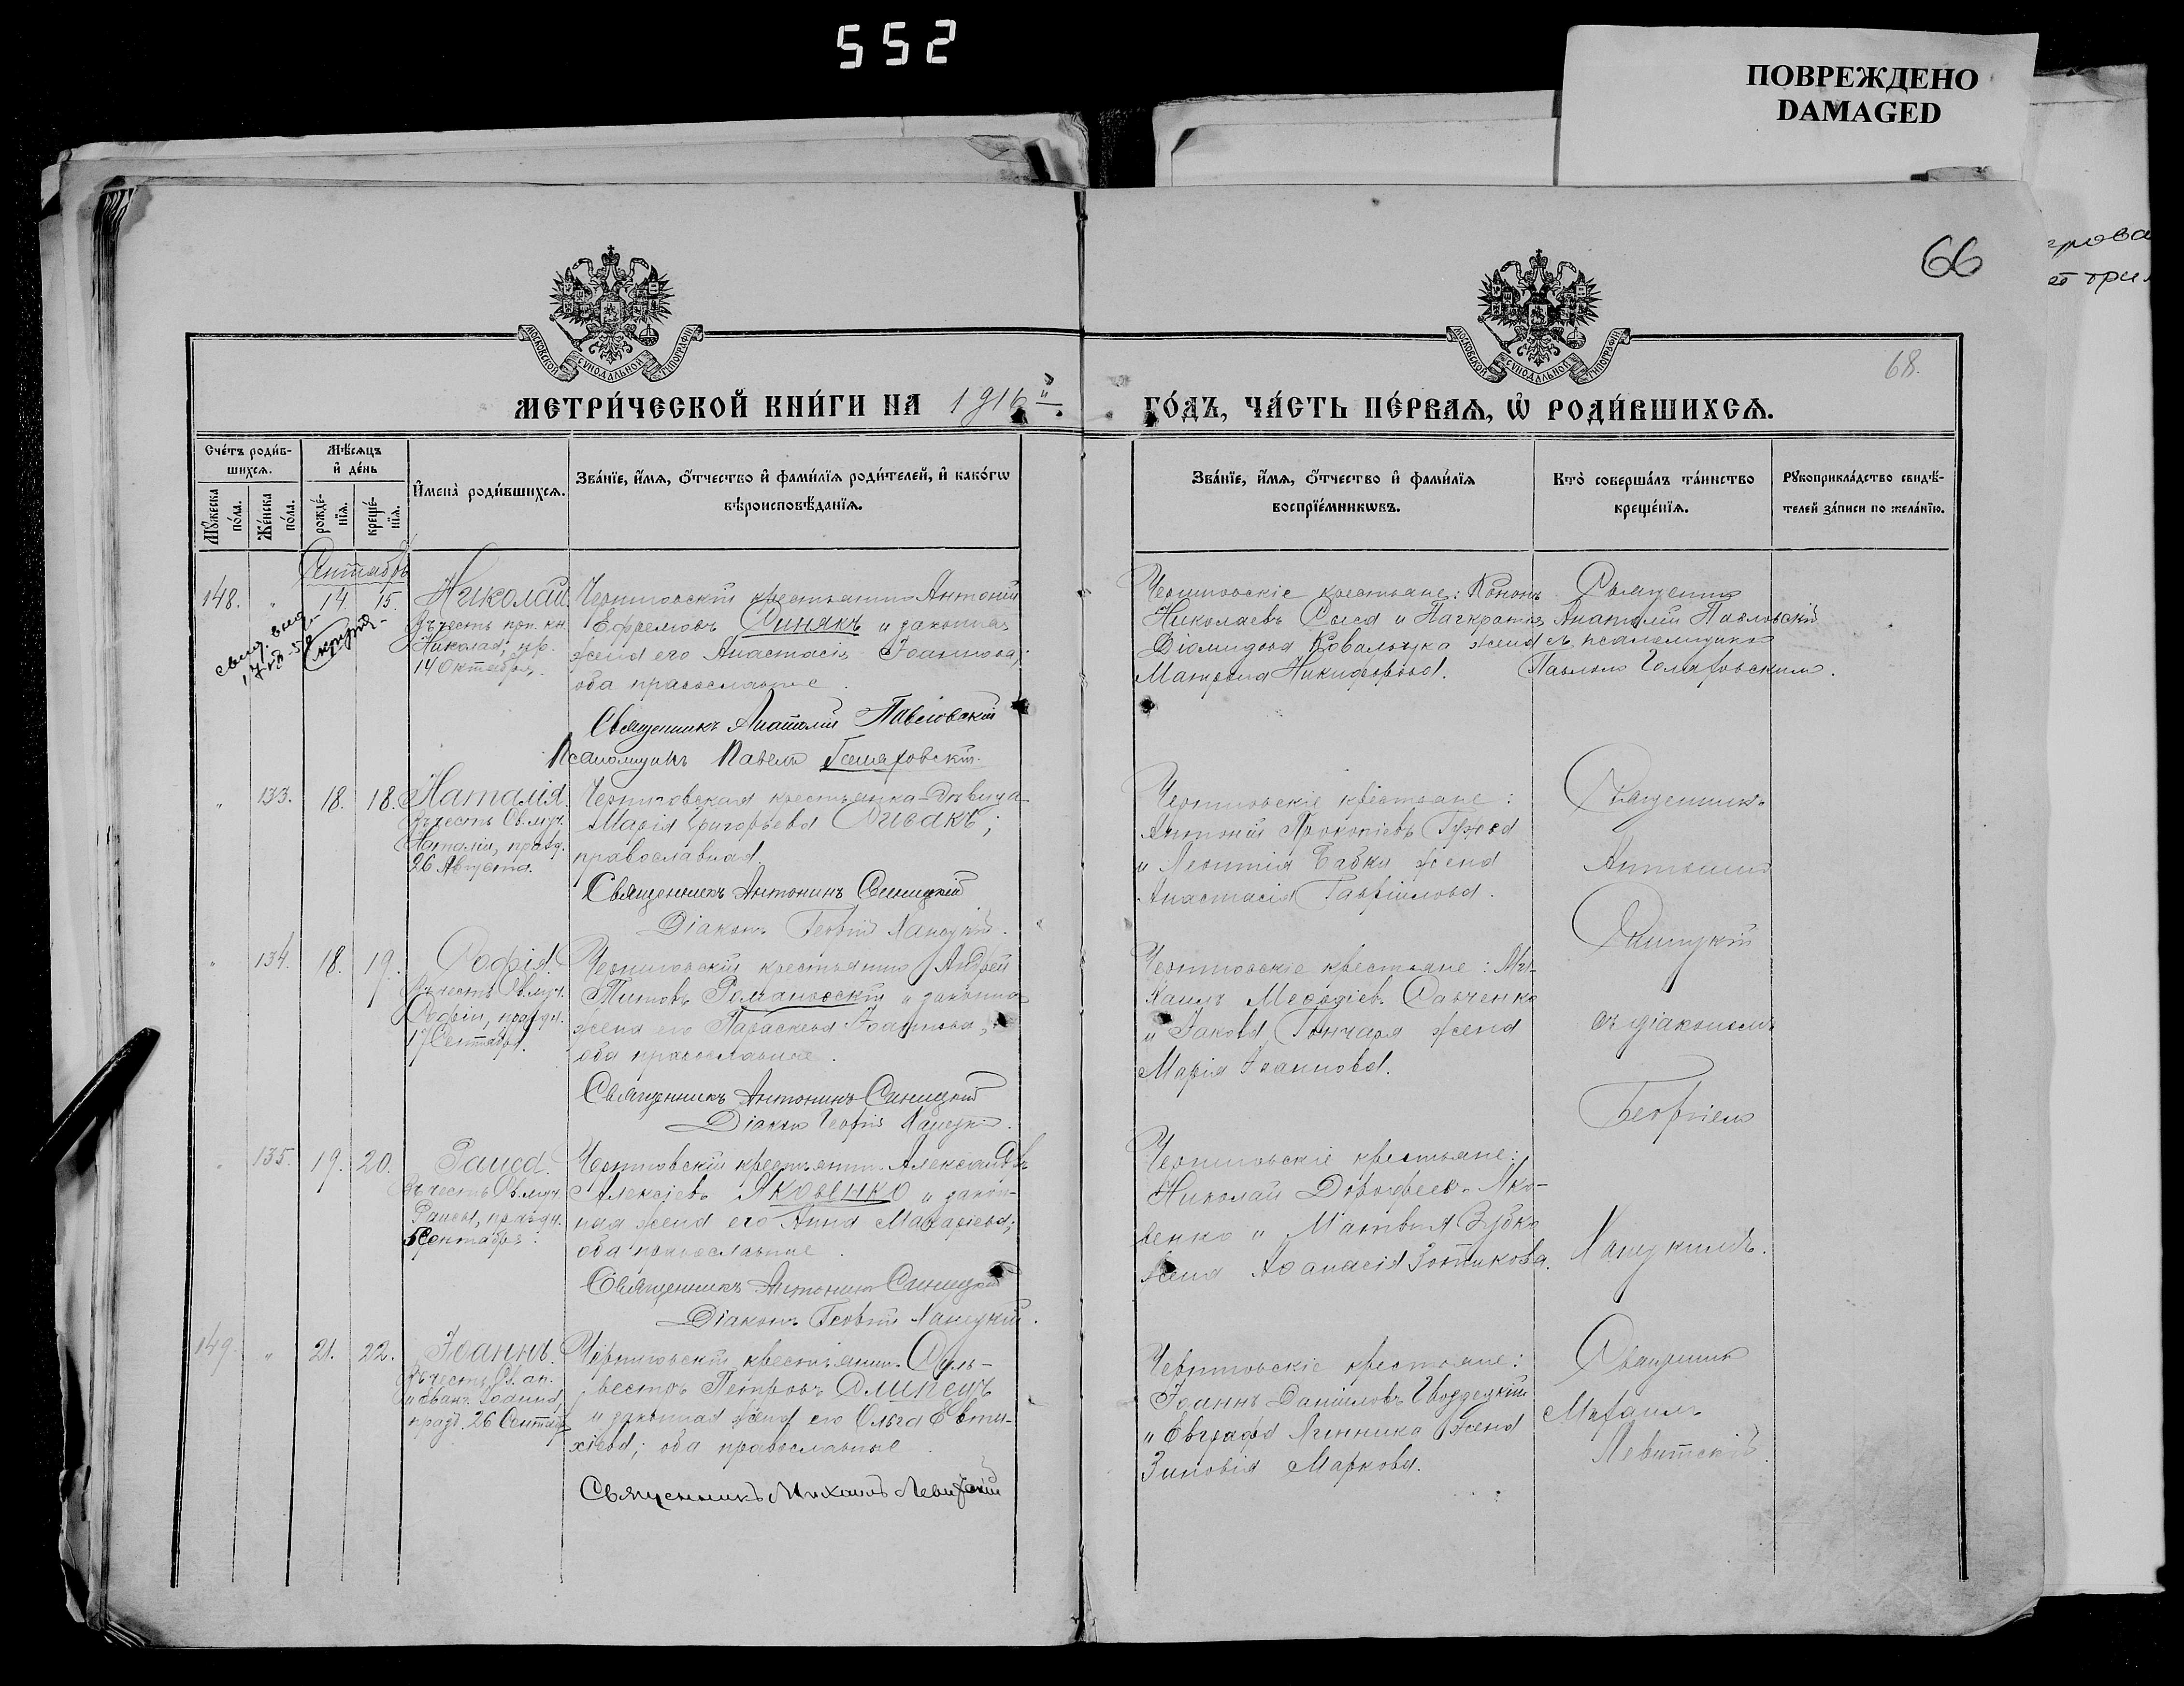 552
ПОВРЕЖДЕНО
DAMAGED
66
68.
МОСКОВСКОЙ СѴНОДАЛЬНОЙ ТИПОГРАФІИ
МОСКОВСКОЙ СѴНОДАЛЬНОЙ ТИПОГРАФІИ
МЕТРИ́ЧЕСКОЙ КНИ́ГИ НА 1916 й
ГО́ДЪ, ЧА́СТЬ ПЕ́РВАѦ, Ѽ РОДИ́ВШИХСѦ.
Сче́тъ роди́в-
шихсѧ.
Мꙋ́жеска
по́ла.
Же́нска
по́ла.
Мѣ́сѧцъ
и҆ де́нь
рожде́-
нїѧ.
креще́-
нїѧ.
И҆мена̀ роди́вшихсѧ.
Зва́нїе, и҆́мѧ, ѻ҆́тчество и҆ фами́лїѧ роди́телей, и҆ како́гѡ
вѣроисповѣ́данїѧ.
Зва́нїе, и҆́мѧ, ѻ҆́тчество и҆ фами́лїѧ
воспрїе́мникѡвъ.
Кто̀ соверша́лъ та́инство
креще́нїѧ.
Рꙋкоприкла́дство свидѣ́-
телей за́писи по жела́нїю.
Сентябрь
148. " 14. 15. Николай.
Въ честь пр. кн.
Николая, пр.
14 Октября.
Черниговскій крестьянинъ Антоній
Ефремовъ Синякъ и законная
жена его Анастасія Іоаннова;
оба православные.
Священникъ Анатолій Павловскій
Псаломщикъ Павелъ Голяховскій.
Черниговскіе крестьяне: Кононъ
Николаевъ и Панкратія
Діомидова Ковальчука жена
Матрона Никифорова.
Священникъ
Анатолій Павловскій
съ псаломщикомъ
Павломъ Голяховскимъ.
" 133. 18. 18. Наталія.
Въ честь Св. муч.
Наталіи, празд.
26 Августа.
Черниговская крестьянка-дѣвица
Марія Григорьева Сивакъ;
православная.
Священникъ Антонинъ Синицкій
Діаконъ Георгій Ханецкій.
Черниговскіе крестьяне:
Антоній Прокопіевъ
и Леонтія Бабки жена
Анастасія Гавріилова.
Священникъ
Антонинъ
Синицкій
съ діакономъ
Георгіемъ
Ханецкимъ.
" 134. 18. 19. Софія.
Въ честь Св. муч.
Софіи, праздн.
17 Сентября.
Черниговскій крестьянинъ Андрей
Титовъ Романовскій и законная
жена его Параскева Іоаннова;
оба православные.
Священникъ Антонинъ Синицкій
Діаконъ Георгій Ханецкій.
Черниговскіе крестьяне: Ми-
хаилъ Меѳодіевъ Савченко
и Іакова Гончара жена
Марія Іоаннова.
" 135. 19. 20. Раиса.
Въ честь Св. муч.
Раисы, праздн.
5 Сентября.
Черниговскій крестьянинъ Александръ
Алексіевъ Яковенко и закон-
ная жена его Анна Макаріева;
оба православные.
Священникъ Антонинъ Синицкій
Діаконъ Георгій Ханецкій.
Черниговскіе крестьяне:
Николай Дороѳеевъ Яко-
венко и Матвѣя Зубка
жена Аѳанасія Зотикова.
149. " 21. 22. Іоаннъ.
Въ честь Св. ап.
и Еванг. Іоанна,
празд. 26 Сентября
Черниговскій крестьянинъ Силь-
вестръ Петровъ Слипецъ
и законная жена его Ольга Евти-
хіева; оба православные.
Священникъ Михаилъ Левитскій
Черниговскіе крестьяне:
Іоаннъ Даніиловъ Гвоздецкій
и Евграфа жена
Зиновія Маркова.
Священникъ
Михаилъ
Левитскій.